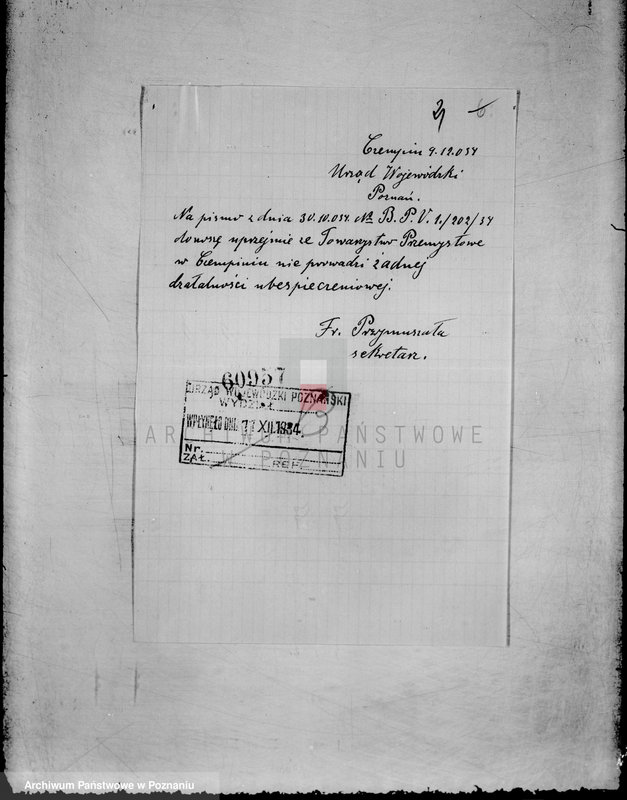 21 6
Czempiń 9.12.034
Urząd Wojewódzki
Poznań.
Na pismo z dnia 30.10.034. № B.P.V.1./202/34
donoszę uprzejmie że Towarzystwo Przemysłowe
w Czempiniu nie prowadzi żadnej
działalności ubezpieczeniowej.
Fr. Przymuszała
sekretarz.
60957
URZĄD WOJEWÓDZKI POZNAŃSKI
WYDZIAŁ
WPŁYNĘŁO DNIA 11 XII.1934.
Nr.
ZAŁ. REF.
ARCHIWUM PAŃSTWOWE
W POZNANIU
Archiwum Państwowe w Poznaniu